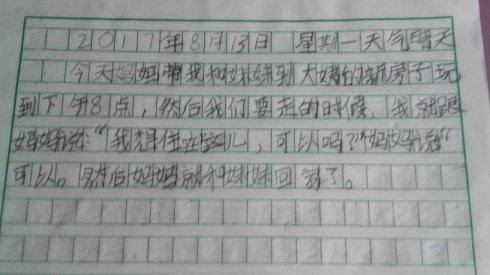 2017年8月13日 星期一 天气晴天
今天妈妈带我和妹妹到大姨的新房子玩
到下午8点，然后我们要走的时候，我就跟
妈妈说：“我想住在这儿，可以吗？”妈妈说“
可以。然后妈妈就和妹妹回家了。